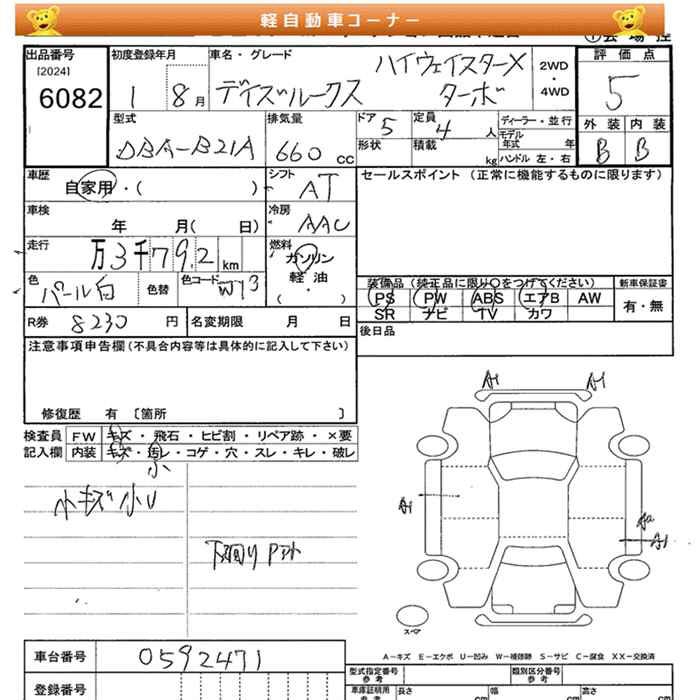 軽自動車コーナー
出品番号 初度登録年月 車名・グレード ハイウェイスターX 2WD・4WD 評価点
[2024] 6082 1 8月 デイズルークス ターボ 5
型式 DBA-B21A 排気量 660 CC ドア 5 定員 4 人 ディーラー・並行 外装 内装
形状 積載 kg モデル年式 年 ハンドル 左・右 B B
車歴 自家用・( ) シフト AT セールスポイント (正常に機能するものに限ります)
車検 年 月( 日) 冷房 AAC
走行 万3千792 km 燃料 ガソリン 軽油 ・ ( )
色 パール白 色替 色コード W13
装備品(純正品に限り○をつけてください) 新車保証書
PS PW ABS エアB AW 有・無
SR ナビ TV カワ
R券 8230 円 名変期限 月 日 後日品
注意事項申告欄(不具合内容等は具体的に記入して下さい)
修復歴 有 〔箇所 〕
検査員 FW キズ・飛石・ヒビ割・リペア跡・×要
記入欄 内装 キズ・汚レ・コゲ・穴・スレ・キレ・破レ
小キズ小U
下廻りPアト
A1 A1
A1
A2
A1
スペア
A-キズ E-エクボ U-凹み W-補修跡 S-サビ C-腐食 XX-交換済
車台番号 0592471 型式指定番号 参考 類別区分番号 参考
登録番号 車庫証明用 参考 長さ cm 幅 cm 高さ cm